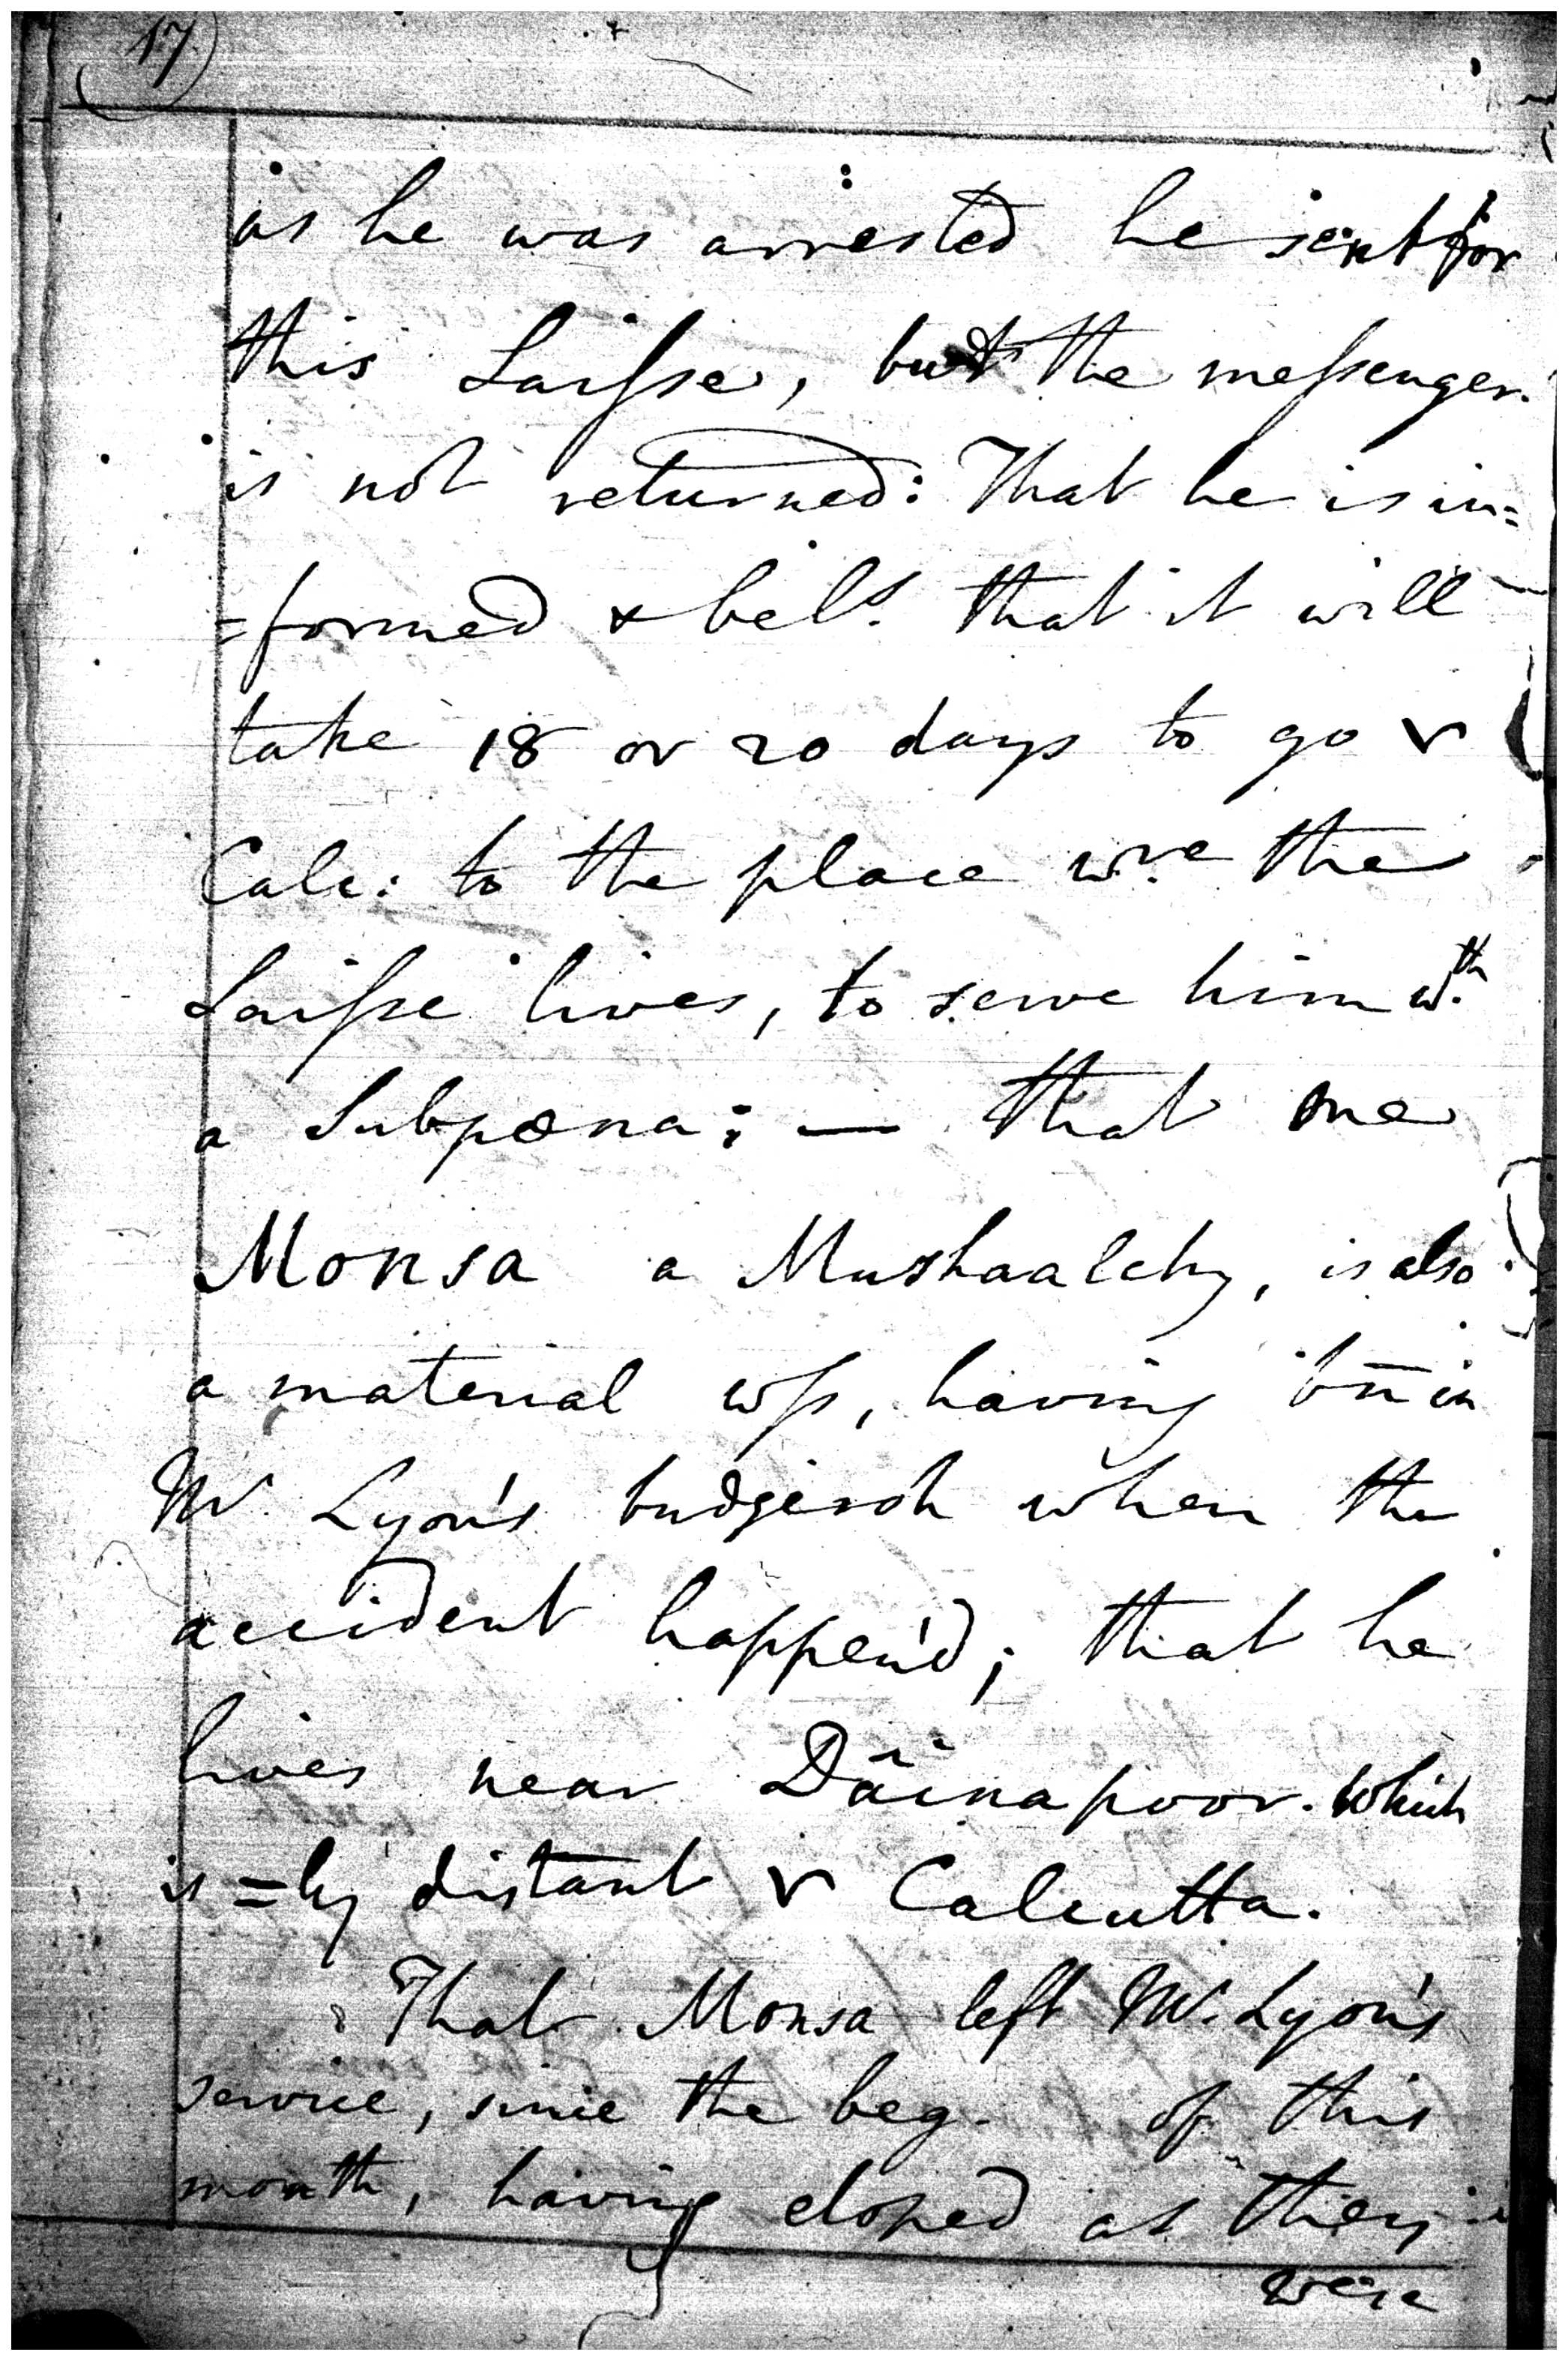 17
as he was arrested he sent for
this Saisse, but the messenger
is not returned: That he is in=
=formed & bels. that it will
take 18 or 20 days to go v
Calc: to the place wre the
Saisse lives, to serve him wth
a Subpœna: — that one
Monsa a Mushaalchy, is also
a material wss, having bn in
Mr Lyon's budgeroh when the
accident happen'd; that he
lives near Däinapoor. which
is =ly distant v Calcutta.
That Monsa left Mr. Lyon's
service, since the beg. of this
month, having eloped as they
were